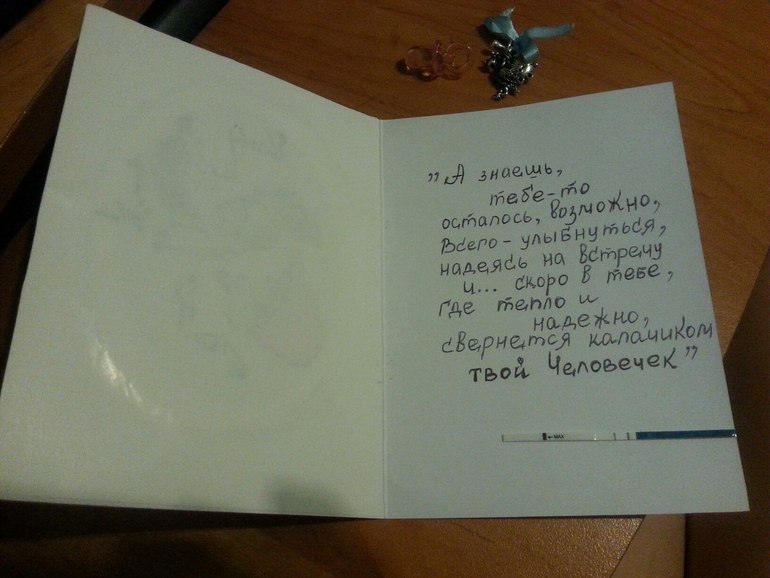 "А знаешь,
тебе-то
осталось, возможно,
Всего - улыбнуться,
надеясь на встречу
и... скоро в тебе,
где тепло и
надежно,
свернется калачиком
твой Человечек"
←MAX